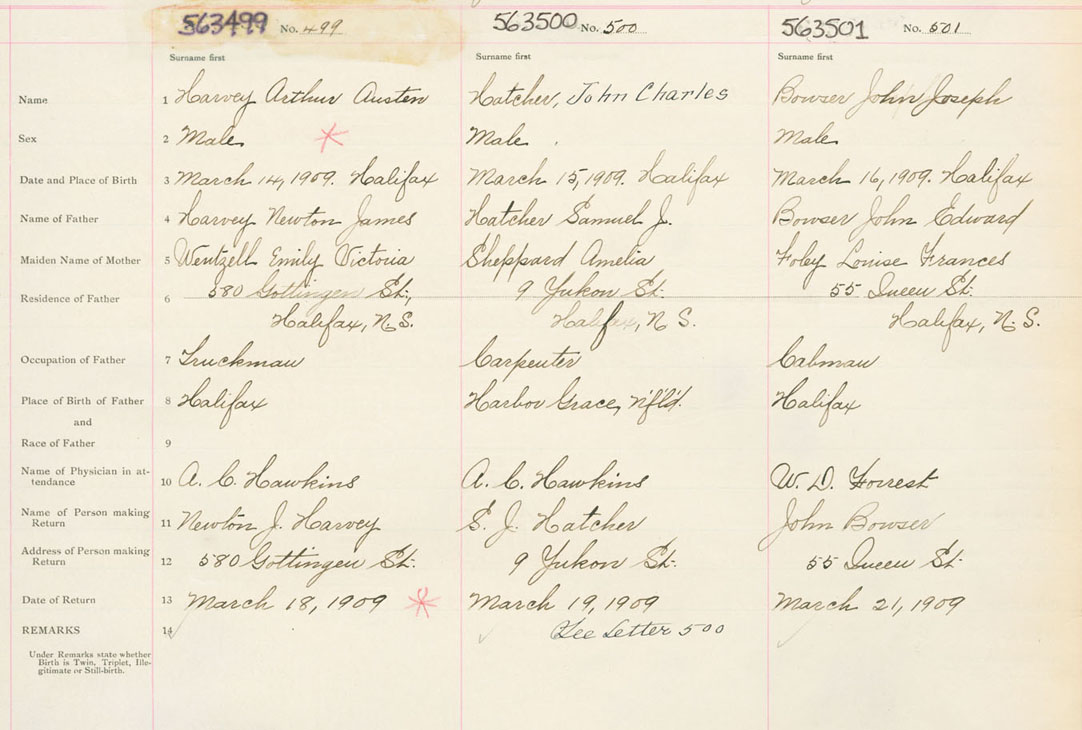 563499 No. 499 563500 No. 500 563501 No. 501
Surname first Surname first Surname first
Name 1 Harvey Arthur Austen Hatcher, John Charles Bowser John Joseph
Sex 2 Male Male Male
Date and Place of Birth 3 March 14, 1909. Halifax March 15, 1909. Halifax March 16, 1909. Halifax
Name of Father 4 Harvey Newton James Hatcher Samuel J. Bowser John Edward
Maiden Name of Mother 5 Wentzell Emily Victoria Sheppard Amelia Foley Louise Frances
Residence of Father 6 580 Gottingen St., 9 Yukon St. 55 Queen St.
Halifax, N.S. Halifax, N.S. Halifax, N.S.
Occupation of Father 7 Truckman Carpenter Cabman
Place of Birth of Father 8 Halifax Harbor Grace, Nfld. Halifax
and
Race of Father 9
Name of Physician in at-
tendance 10 A. C. Hawkins A. C. Hawkins W. D. Forrest
Name of Person making
Return 11 Newton J. Harvey S. J. Hatcher John Bowser
Address of Person making
Return 12 580 Gottingen St. 9 Yukon St. 55 Queen St.
Date of Return 13 March 18, 1909 March 19, 1909 March 21, 1909
REMARKS 14 See Letter 500
Under Remarks state whether
Birth is Twin, Triplet, Ille-
gitimate or Still-birth.